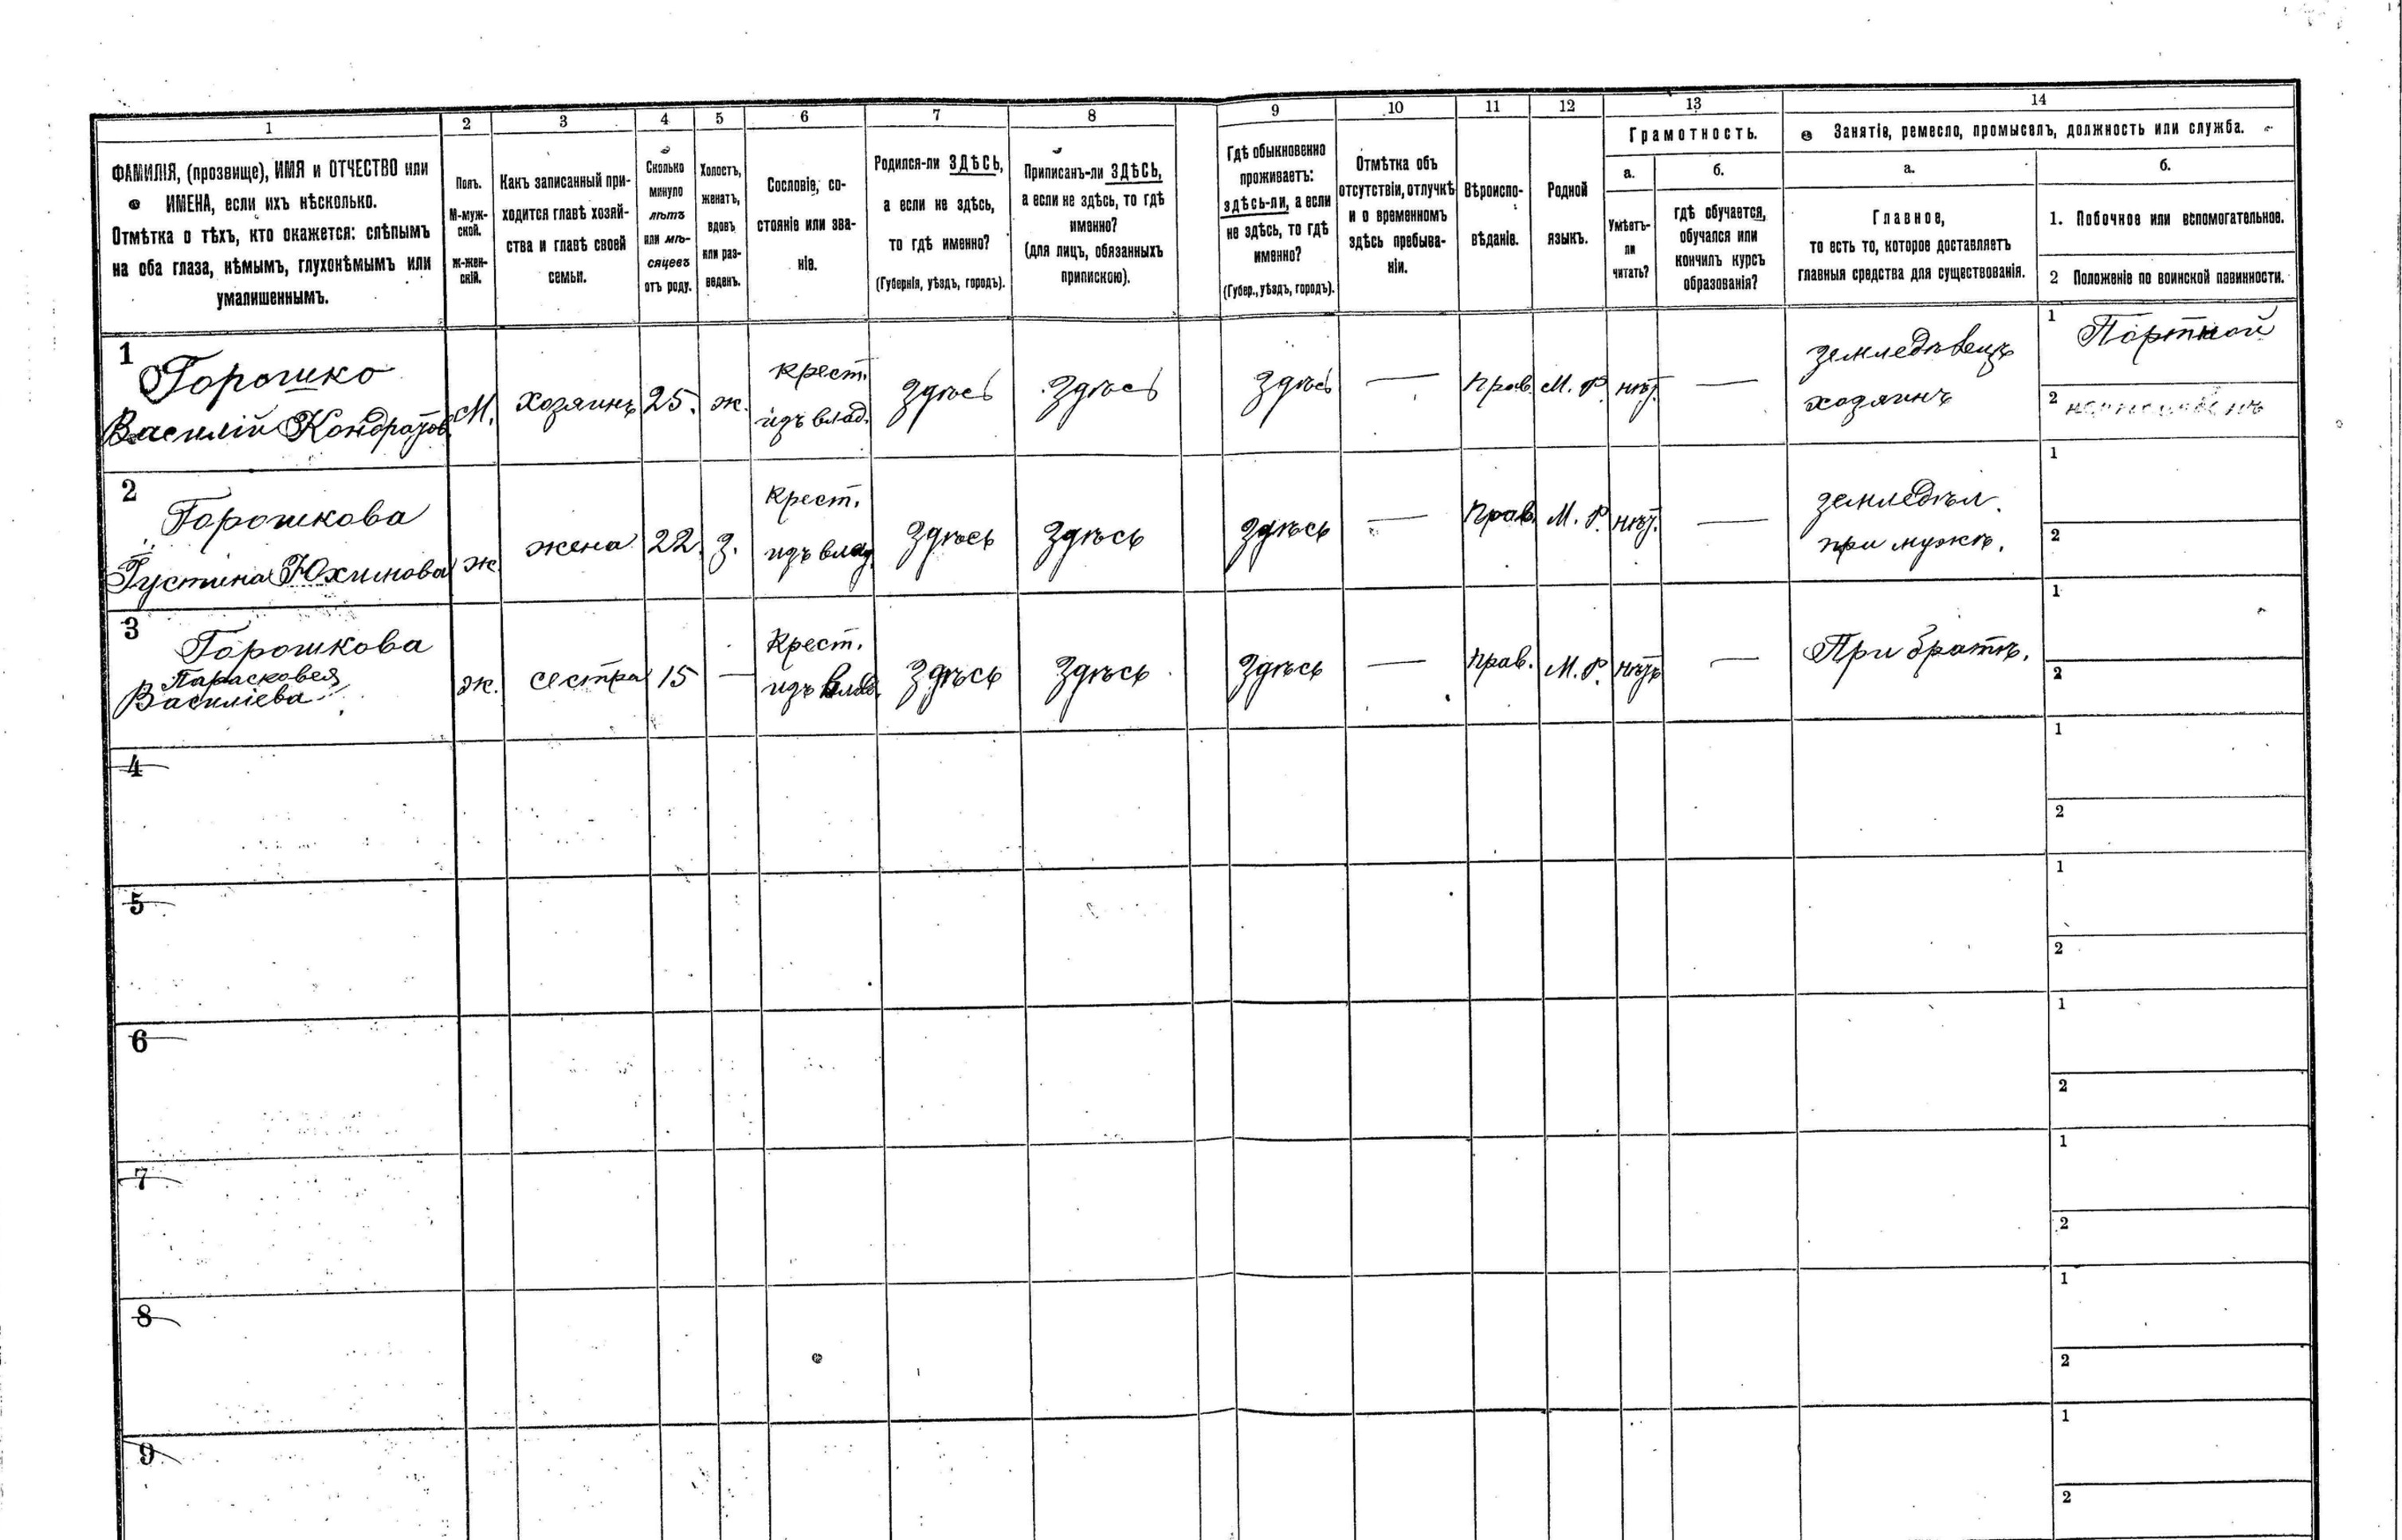 1 2 3 4 5 6 7 8 9 10 11 12 13 14
ФАМИЛІЯ, (прозвище), ИМЯ и ОТЧЕСТВО или
ИМЕНА, если ихъ нѣсколько.
Отмѣтка о тѣхъ, кто окажется: слѣпымъ
на оба глаза, нѣмымъ, глухонѣмымъ или
умалишеннымъ.
Полъ.
М-муж-
ской.
ж-жен-
скій.
Какъ записанный при-
ходится главѣ хозяй-
ства и главѣ своей
семьи.
Сколько
минуло
лѣтъ
или мѣ-
сяцевъ
отъ роду.
Холостъ,
женатъ,
вдовъ
или раз-
веденъ.
Сословіе, со-
стояніе или зва-
ніе.
Родился-ли ЗДѢСЬ,
а если не здѣсь,
то гдѣ именно?
(Губернія, уѣздъ, городъ).
Приписанъ-ли ЗДѢСЬ,
а если не здѣсь, то гдѣ
именно?
(для лицъ, обязанныхъ
припискою).
Гдѣ обыкновенно
проживаетъ:
здѣсь-ли, а если
не здѣсь, то гдѣ
именно?
(Губер., уѣздъ, городъ).
Отмѣтка объ
отсутствіи, отлучкѣ
и о временномъ
здѣсь пребыва-
ніи.
Вѣроиспо-
вѣданіе.
Родной
языкъ.
Грамотность.
а.
Умѣетъ-
ли
читать?
б.
гдѣ обучается,
обучался или
кончилъ курсъ
образованія?
Занятіе, ремесло, промыселъ, должность или служба.
а.
Главное,
то есть то, которое доставляетъ
главныя средства для существованія.
б.
1. Побочное или вспомогательное.
2 Положеніе по воинской повинности.
1
Горошко
Василій Кондратов.
М.
хозяинъ
25.
ж.
крест.
изъ влад.
Здѣсь
Здѣсь
Здѣсь
—
прав.
М. Р.
нѣт.
—
земледѣвецъ
хозяинъ
1 Портной
2
2
Горошкова
Густина Юхимова
ж.
жена
22.
з.
Крест.
изъ влад.
Здѣсь
Здѣсь
Здѣсь
—
Прав.
М. Р.
нѣт.
—
земледѣл.
при мужѣ.
1
2
3
Горошкова
Парасковея
Василіева
ж.
сестра
15
—
Крест.
изъ влад.
Здѣсь
Здѣсь
Здѣсь
—
прав.
М. Р.
нѣтъ
—
При братѣ.
1
2
4
1
2
5
1
2
6
1
2
7
1
2
8
1
2
9
1
2